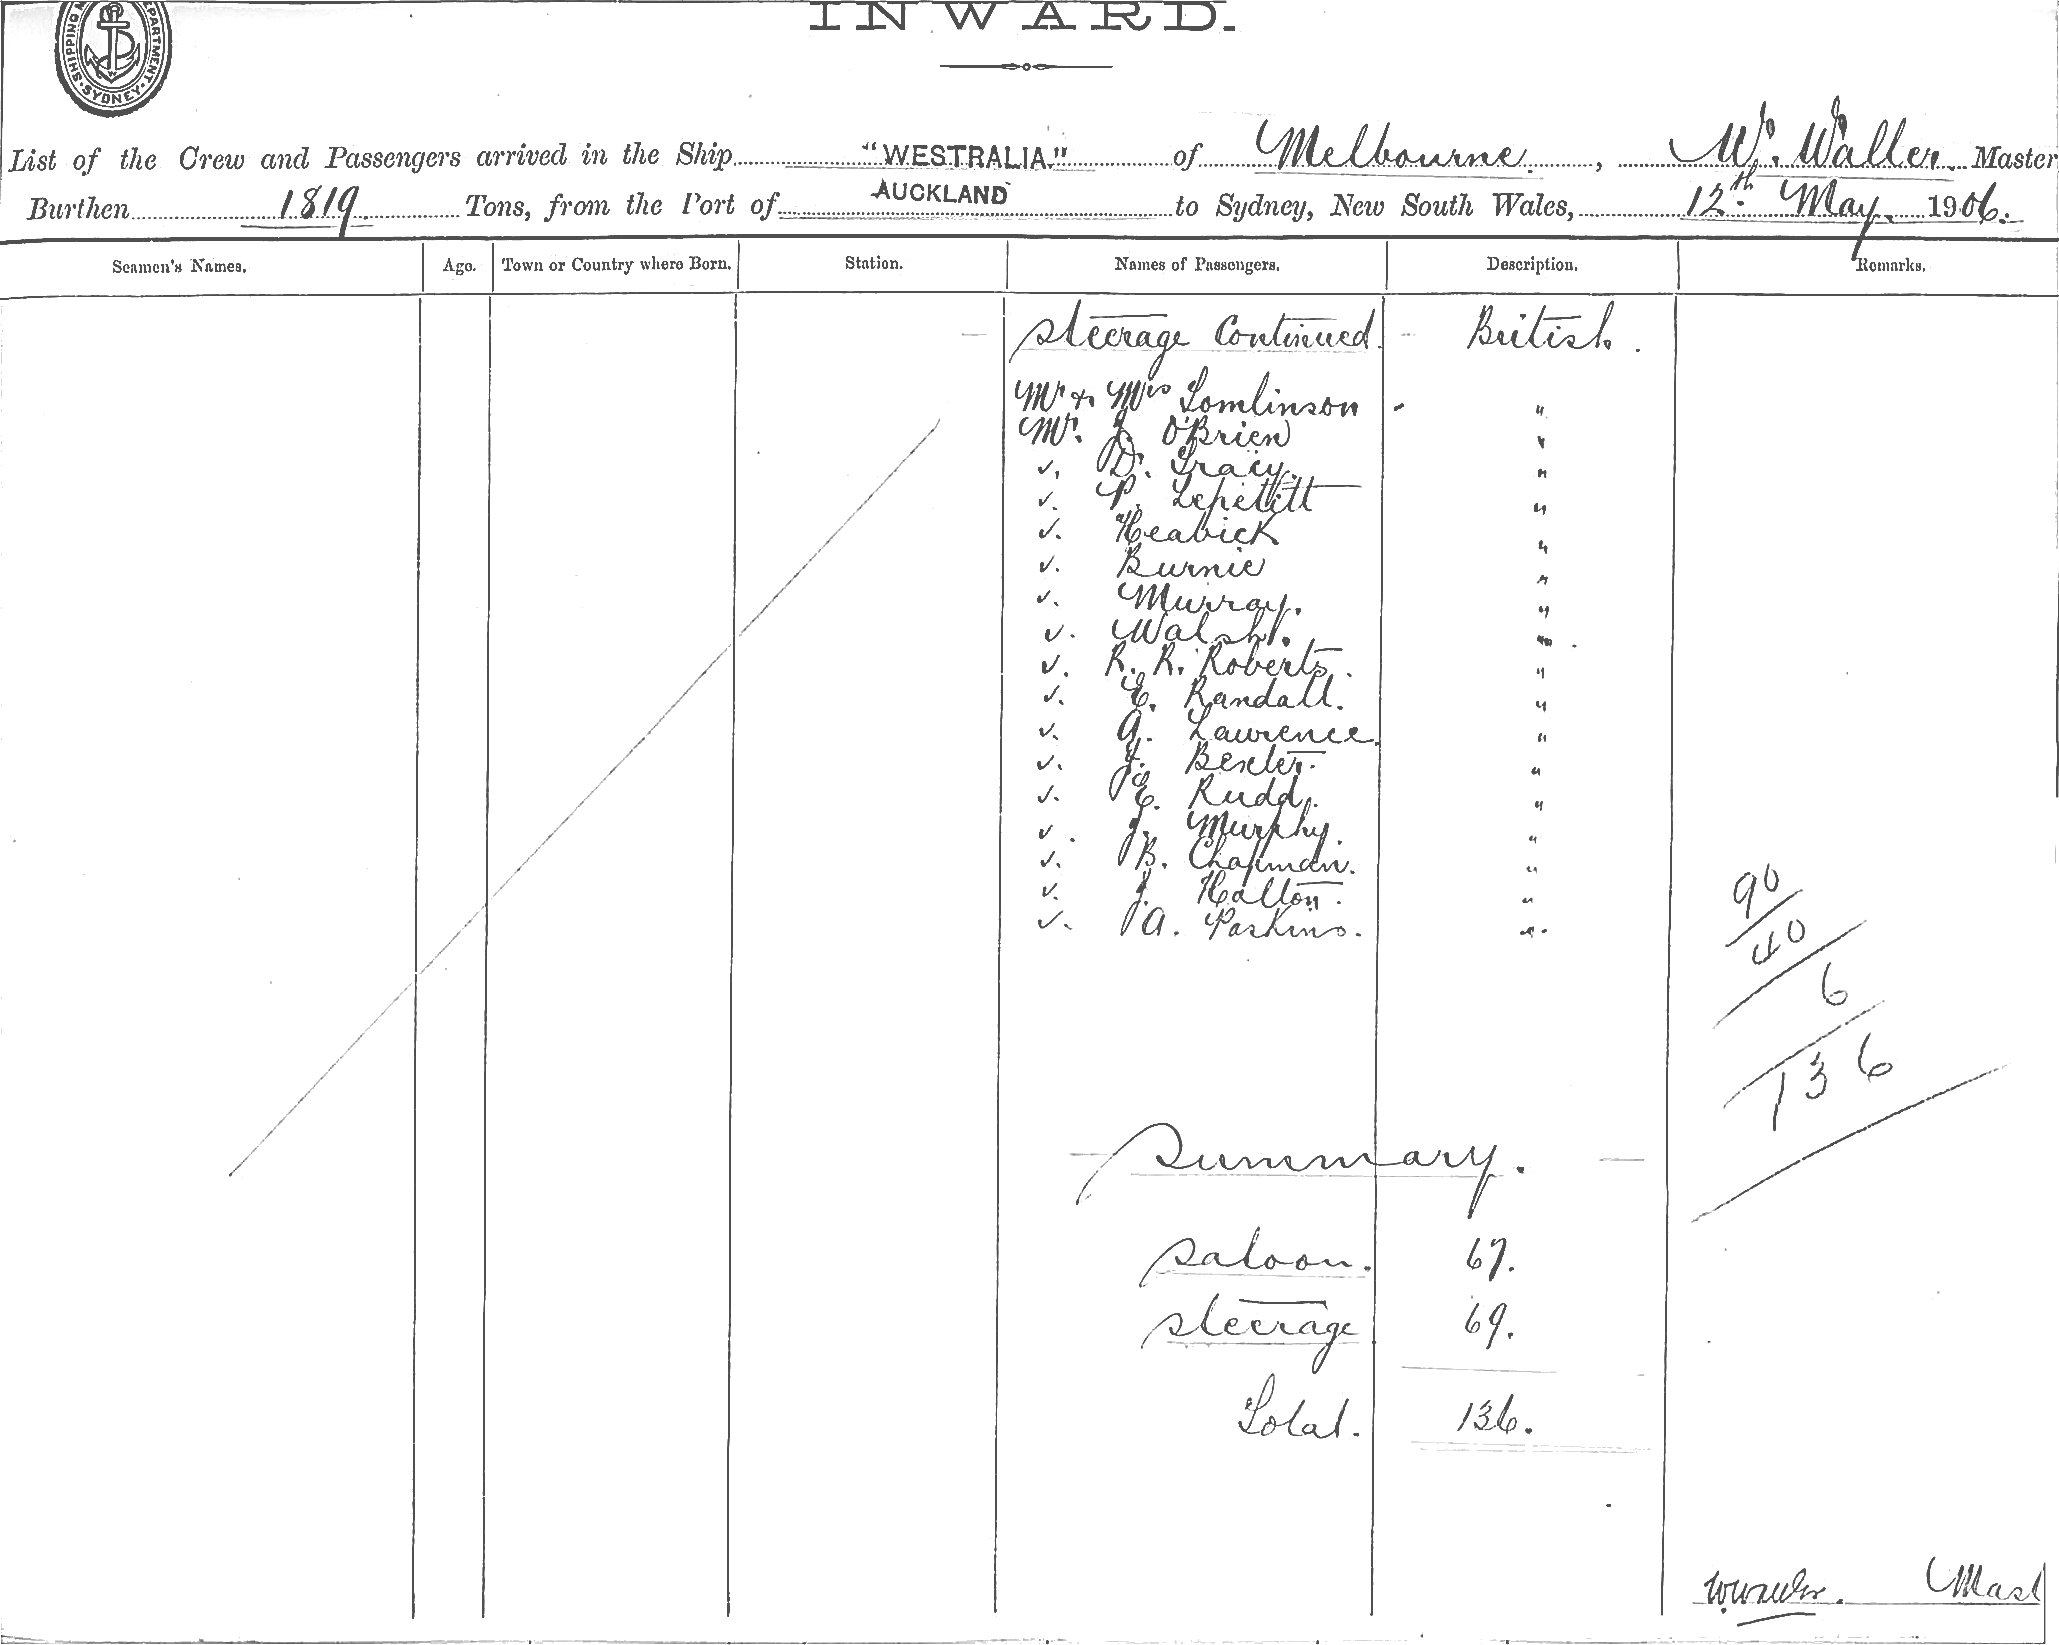 INWARD.
SHIPPING DEPARTMENT. SYDNEY.
List of the Crew and Passengers arrived in the Ship "WESTRALIA." of Melbourne, W. Waller Master
Burthen 1819 Tons, from the Port of AUCKLAND to Sydney, New South Wales, 12th May. 1906.
Seamen's Names. Age. Town or Country where Born. Station. Names of Passengers. Description. Remarks.
Steerage Continued. British.
Mr & Mrs Tomlinson "
Mr. J. O'Brien "
". D. Tracy. "
". P. Lepetitt "
". Heavick "
". Burnie "
". Murray. "
". Walsh. "
". R. R. Roberts. "
". E. Randall. "
". A. Lawrence. "
". J. Bexter. "
". E. Rudd. "
". J. Murphy. "
". B. Chapman. "
". J. Halton. "
". A. Paskins. "
90
40
6
136
Summary.
Saloon. 67.
Steerage 69.
Total. 136.
W. Waller. Mast